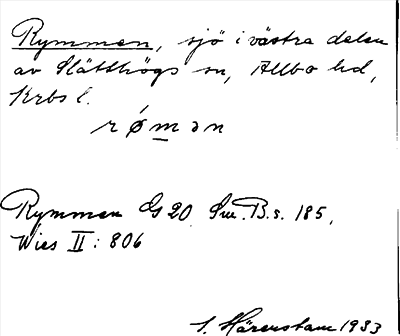 Rymmen, sjö i västra delen
av Slätthögs sn, Allbo hd,
Krbs l.
rǿmən
Rymmen G 20 Sm. B. s. 185,
Wies II: 806
S. Härenstam 1933